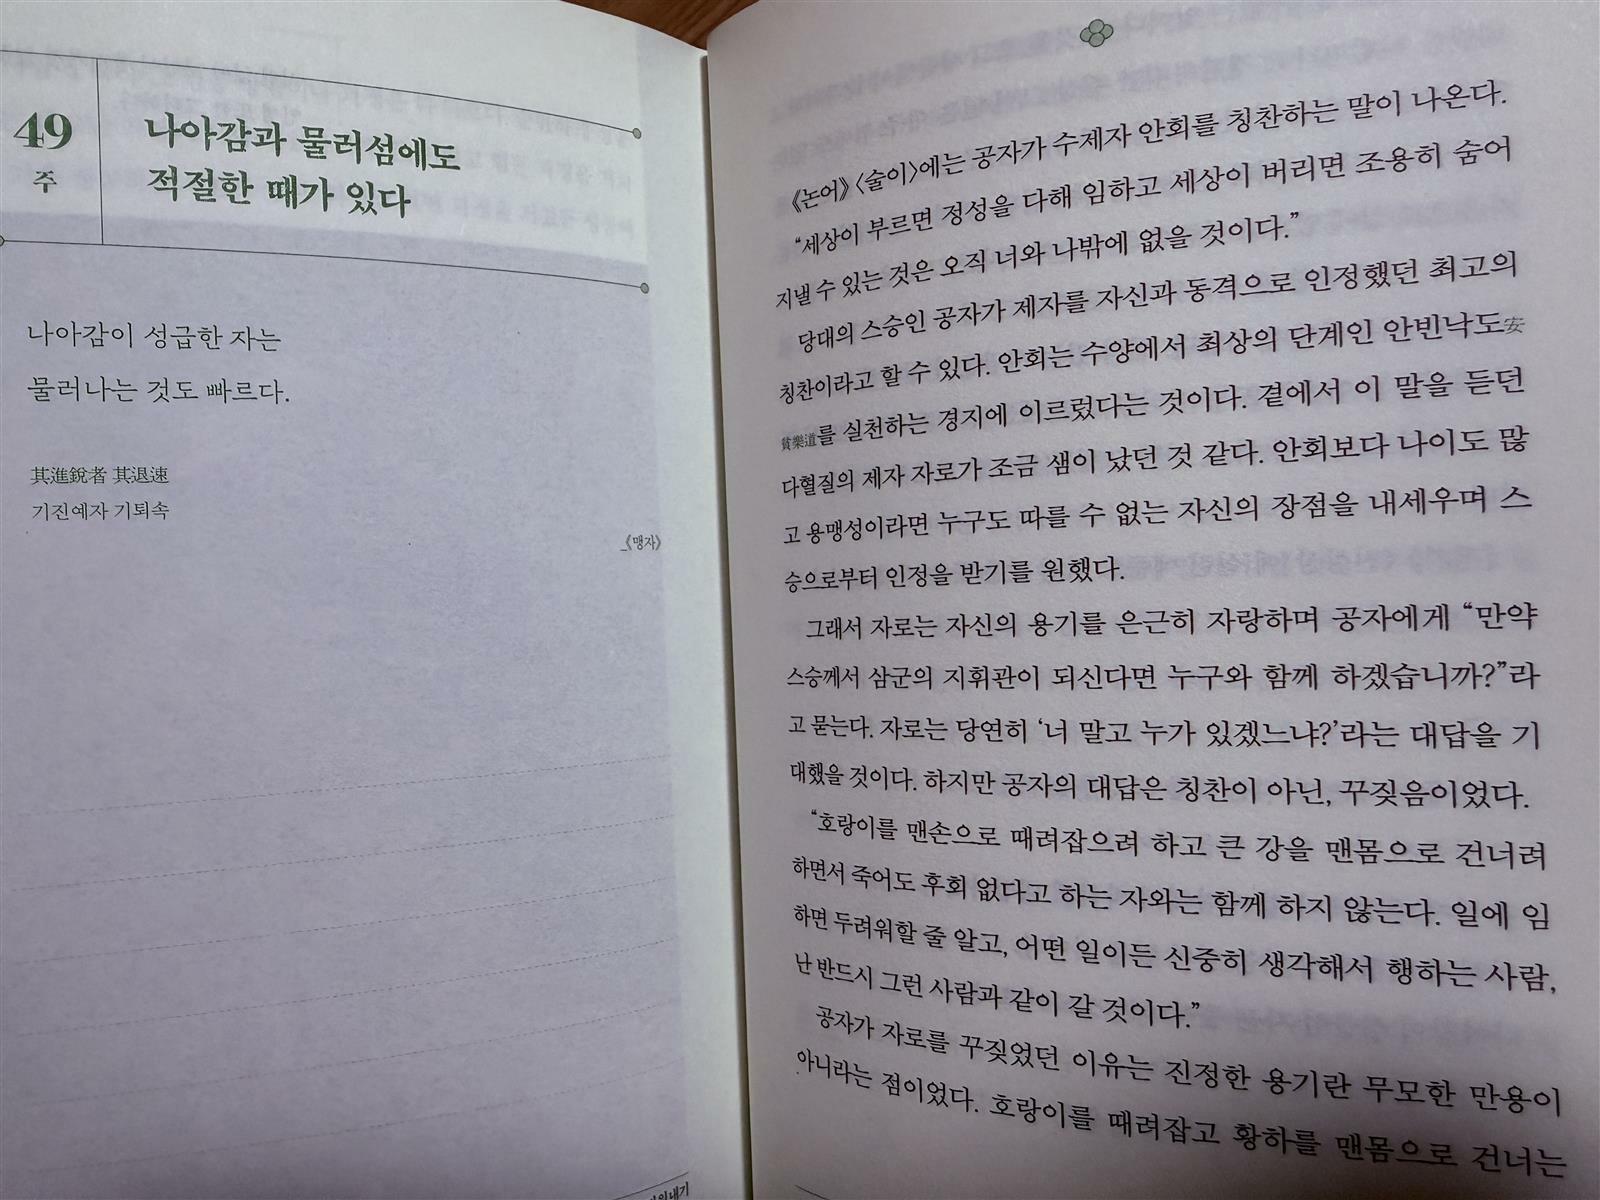 49
주
나아감과 물러섬에도
적절한 때가 있다
나아감이 성급한 자는
물러나는 것도 빠르다.
其進銳者 其退速
기진예자 기퇴속
_《맹자》
《논어》〈술이〉에는 공자가 수제자 안회를 칭찬하는 말이 나온다.
“세상이 부르면 정성을 다해 임하고 세상이 버리면 조용히 숨어
지낼 수 있는 것은 오직 너와 나밖에 없을 것이다.”
당대의 스승인 공자가 제자를 자신과 동격으로 인정했던 최고의
칭찬이라고 할 수 있다. 안회는 수양에서 최상의 단계인 안빈낙도安
貧樂道를 실천하는 경지에 이르렀다는 것이다. 곁에서 이 말을 듣던
다혈질의 제자 자로가 조금 샘이 났던 것 같다. 안회보다 나이도 많
고 용맹성이라면 누구도 따를 수 없는 자신의 장점을 내세우며 스
승으로부터 인정을 받기를 원했다.
그래서 자로는 자신의 용기를 은근히 자랑하며 공자에게 “만약
스승께서 삼군의 지휘관이 되신다면 누구와 함께 하겠습니까?”라
고 묻는다. 자로는 당연히 ‘너 말고 누가 있겠느냐?’라는 대답을 기
대했을 것이다. 하지만 공자의 대답은 칭찬이 아닌, 꾸짖음이었다.
“호랑이를 맨손으로 때려잡으려 하고 큰 강을 맨몸으로 건너려
하면서 죽어도 후회 없다고 하는 자와는 함께 하지 않는다. 일에 임
하면 두려워할 줄 알고, 어떤 일이든 신중히 생각해서 행하는 사람,
난 반드시 그런 사람과 같이 갈 것이다.”
공자가 자로를 꾸짖었던 이유는 진정한 용기란 무모한 만용이
아니라는 점이었다. 호랑이를 때려잡고 황하를 맨몸으로 건너는